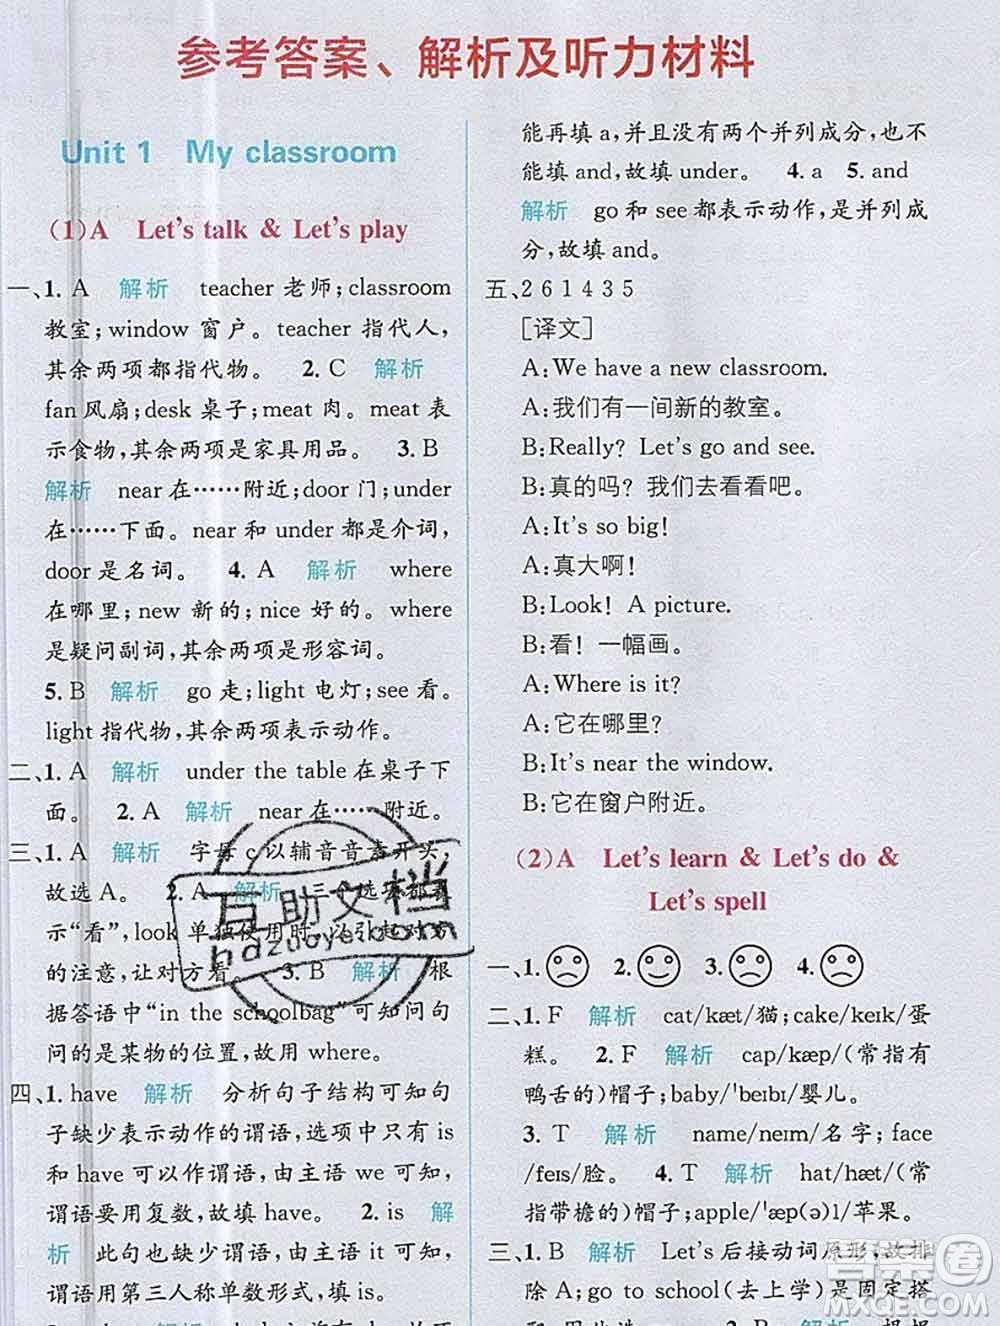 参考答案、解析及听力材料
Unit 1 My classroom
(1)A Let's talk & Let's play
一、1. A 解析 teacher 老师;classroom
教室;window 窗户。teacher 指代人,
其余两项都指代物。 2. C 解析
fan 风扇;desk 桌子;meat 肉。meat 表
示食物,其余两项是家具用品。 3. B
解析 near 在……附近;door 门;under
在……下面。near 和 under 都是介词,
door 是名词。 4. A 解析 where
在哪里;new 新的;nice 好的。where
是疑问副词,其余两项是形容词。
5. B 解析 go 走;light 电灯;see 看。
light 指代物,其余两项表示动作。
二、1. A 解析 under the table 在桌子下
面。 2. A 解析 near 在……附近。
三、1. A 解析 字母 c 以辅音音素开头,
故选 A。 2. A 解析 三个选项都表
示“看”,look 单独使用时,以引起对方
的注意,让对方看。 3. B 解析 根
据答语中“in the schoolbag”可知问句
问的是某物的位置,故用 where。
四、1. have 解析 分析句子结构可知句
子缺少表示动作的谓语,选项中只有 is
和 have 可以作谓语,由主语 we 可知,
谓语要用复数,故填 have。 2. is 解
析 此句也缺少谓语,由主语 it 可知,
谓语用第三人称单数形式,填 is。
能再填 a,并且没有两个并列成分,也不
能填 and,故填 under。 4. a 5. and
解析 go 和 see 都表示动作,是并列成
分,故填 and。
五、2 6 1 4 3 5
[译文]
A:We have a new classroom.
A:我们有一间新的教室。
B:Really? Let's go and see.
B:真的吗? 我们去看看吧。
A:It's so big!
A:真大啊!
B:Look! A picture.
B:看! 一幅画。
A:Where is it?
A:它在哪里?
B:It's near the window.
B:它在窗户附近。
(2)A Let's learn & Let's do &
Let's spell
一、1. 2. 3. 4.
二、1. F 解析 cat/kæt/猫;cake/keɪk/蛋
糕。 2. F 解析 cap/kæp/(常指有
鸭舌的)帽子;baby/ˈbeɪbɪ/婴儿。
3. T 解析 name/neɪm/名字;face
/feɪs/脸。 4. T 解析 hat/hæt/(常
指带檐的)帽子;apple/ˈæp(ə)l/苹果。
三、1. B 解析 Let's 后接动词原形,故排
除 A;go to school(去上学)是固定搭
互助文档
hdzuoye.com
答案圈
MXQE.COM